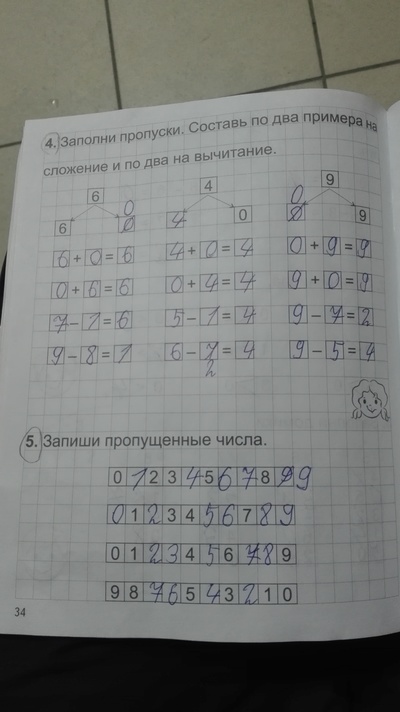 4. Заполни пропуски. Составь по два примера на
сложение и по два на вычитание.
6 4 9
0 0
6 0 4 0 0 9
6+0=6 4+0=4 0+9=9
0+6=6 0+4=4 9+0=9
7-1=6 5-1=4 9-7=2
9-8=1 6-7=4 9-5=4
2
5. Запиши пропущенные числа.
0 1 2 3 4 5 6 7 8 9 9
0 1 2 3 4 5 6 7 8 9
0 1 2 3 4 5 6 7 8 9
9 8 7 6 5 4 3 2 1 0
34